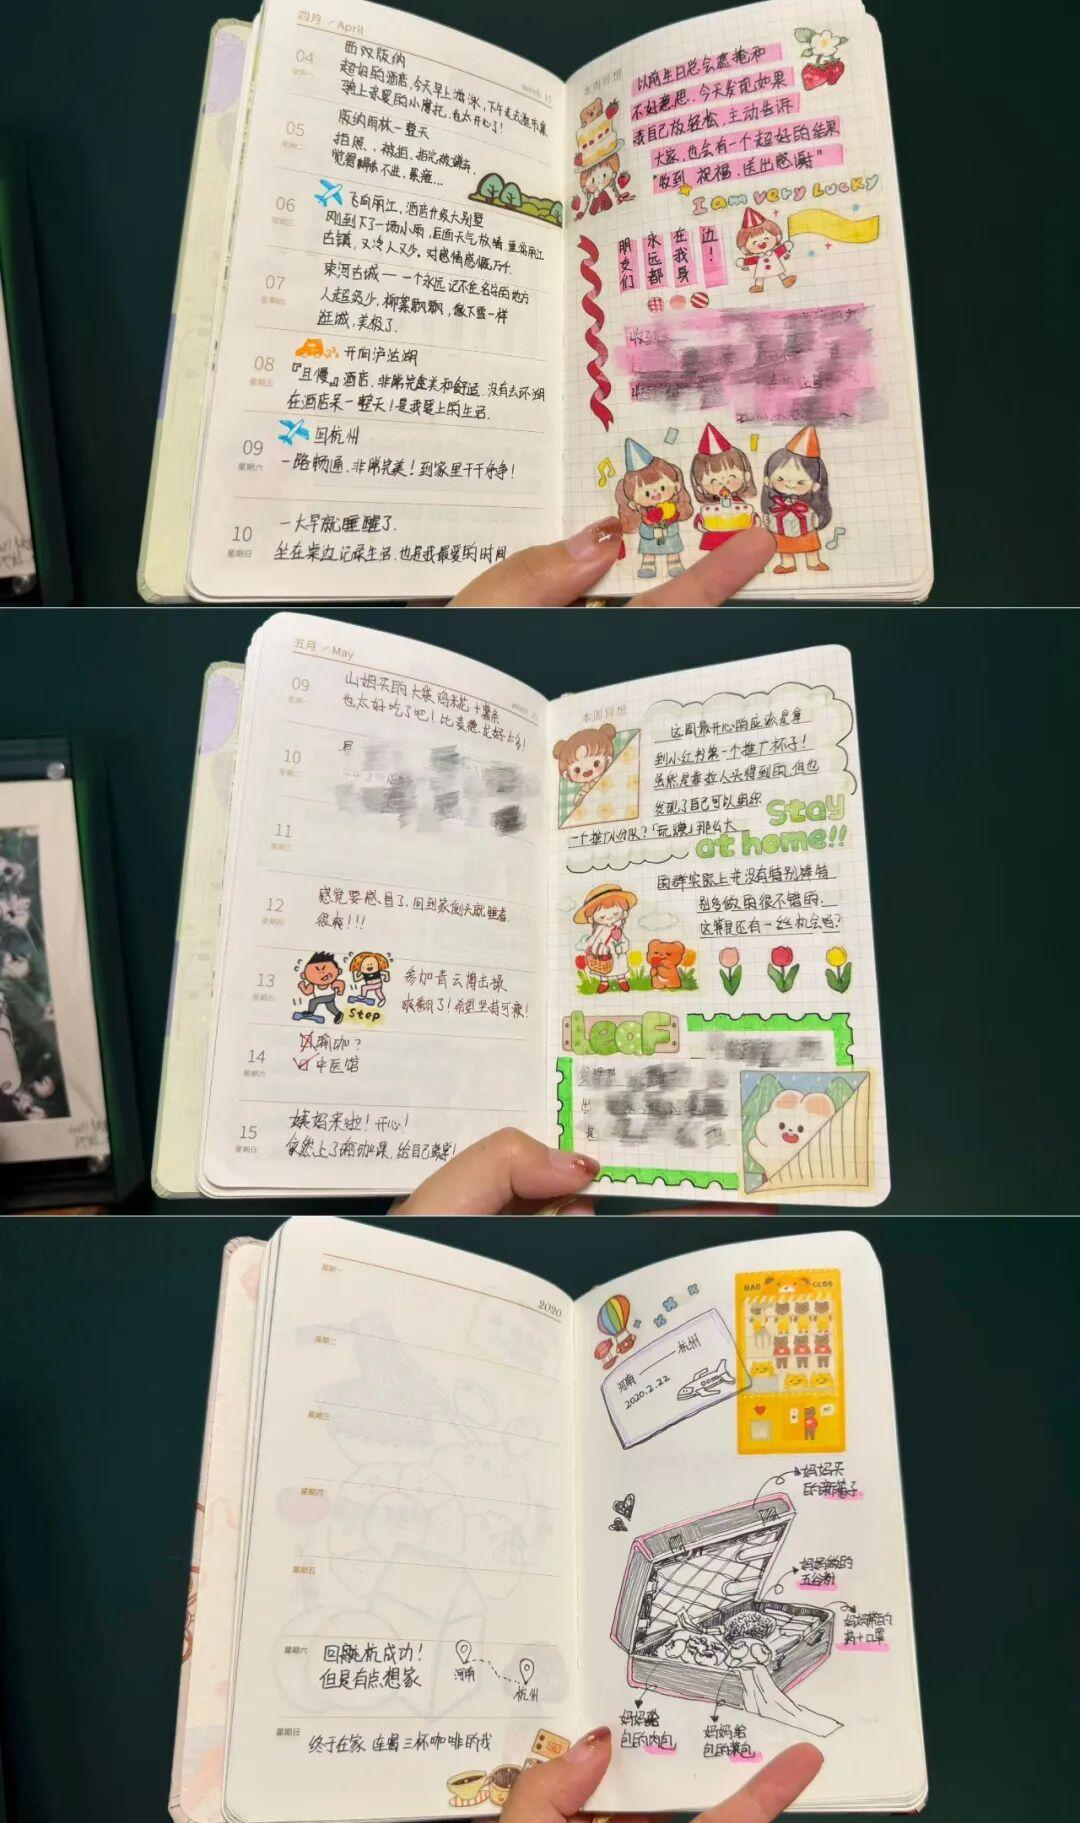 四月 / April
week 15
04
星期一
西双版纳
超好的酒店,今天早上游泳,下午去大超市集
骑上亲爱的小摩托,也太开心了!
05
星期二
版纳雨林一整天
拍照、被拍、拍完被
不进、暴涨...
06
星期三
飞向丽江、酒店升级大别墅
刚到下了一场小雨,后面天气放晴,重逛丽江
古镇,又冷人又少。对感情感慨万千.
07
星期四
束河古城——一个永远记不住名字的地方
人超级少,柳絮飘飘,像下雪一样
逛城,美极了.
08
星期五
开向泸沽湖
『且慢』酒店,非常完美和舒适.没有去环湖
在酒店呆一整天!是我爱上的生活.
09
星期六
回杭州
一路畅通,非常完美!到家里干干净净!
10
星期日
一大早就睡醒了.
坐在桌边记录生活.也是我最爱的时间
本周异想
以前生日总会遮掩和
不好意思.今天发现如果
我自己放轻松,主动告诉
大家,也会有一个超好的结果
"收到 祝福,送出感谢"
I am very Lucky
朋友们
永远都
在我身
边!
五月 / May
week 20
09
星期一
山姆买的大袋鸡米花+薯条
也太好吃了吧!比麦德龙好太多!
10
星期二
11
星期三
12
星期四
感觉要感冒了,回到家倒头就睡着
很爽!!!
13
星期五
参加青云搏击操
爽翻了!希望坚持可瘦!
Step
14
星期六
瑜珈?
中医馆
15
星期日
姨妈来啦!开心!
依然上了瑜珈课,给自己鼓掌!
本周异想
这周最开心的应该是拿
到小红书第一个推广杯子!
虽然是靠拉人头得到的.但也
发现了自己可以组织
一个推广小分队?「玩赚」那么大
Stay
at home!!
的群实际上也没有特别棒特
别多做的很不错的.
这算是还有一丝机会吗?
Leaf
2020
星期一
星期二
星期三
星期四
星期五
星期六
回杭成功!
但是有点想家
河南
杭州
星期日
终于在家 连喝三杯咖啡的我
河南——杭州
2020.2.22
妈妈买
的新箱子
妈妈做的
五谷粉
妈妈带的
药+口罩
妈妈给
包的肉包
妈妈给
包的菜包